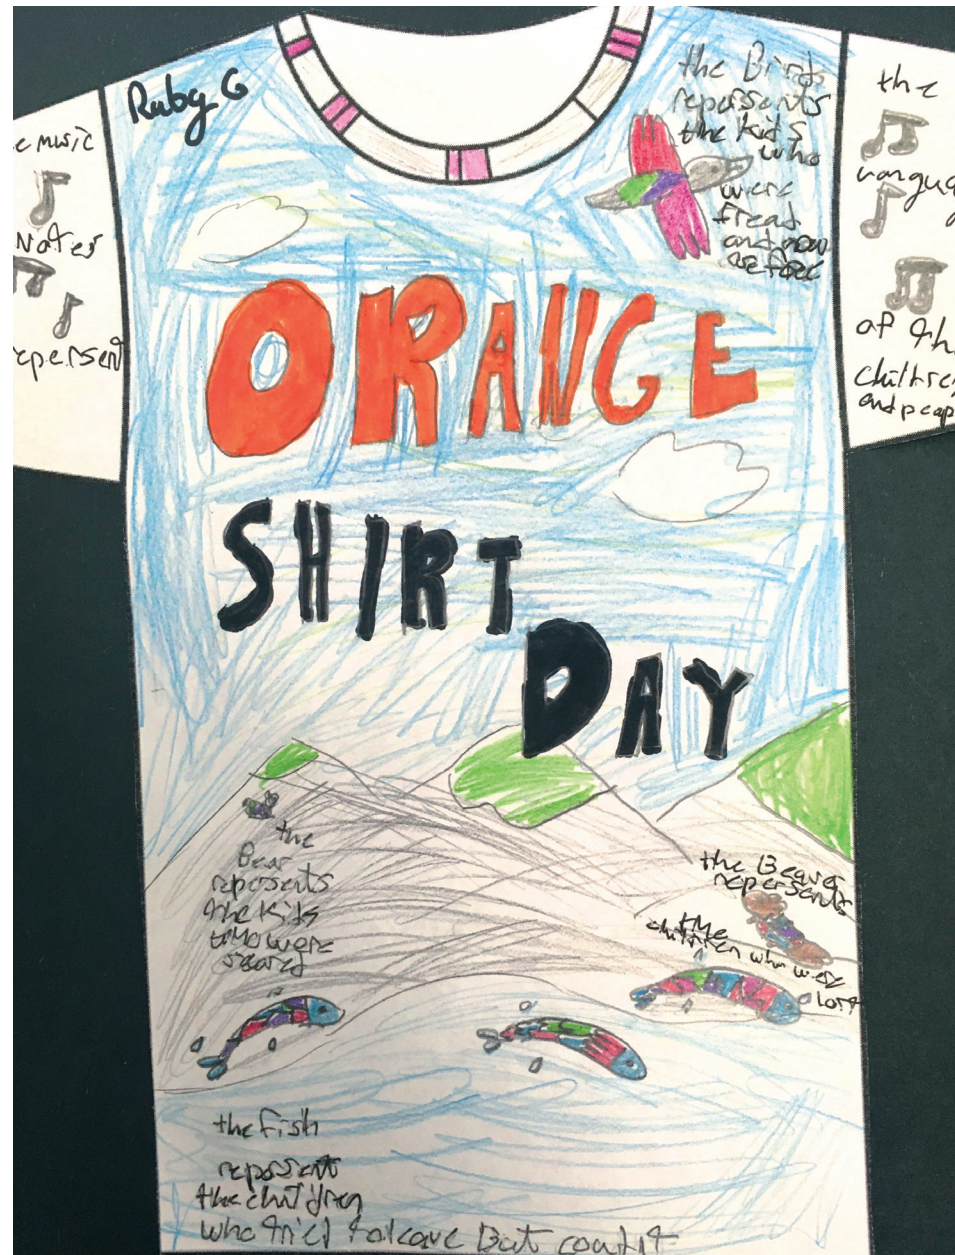 Ruby G
e music
Notes
epersent
the Birds
repersents
the kids
who
were
fread
and now
are free
the
of the
children
and peop
ORANGE
SHIRT
DAY
the
Bear
repersents
the kids
who were
scared
the Beaver
repersents
the
children who were
lost
the fish
repersent
the children
who tried to leave But couldnt